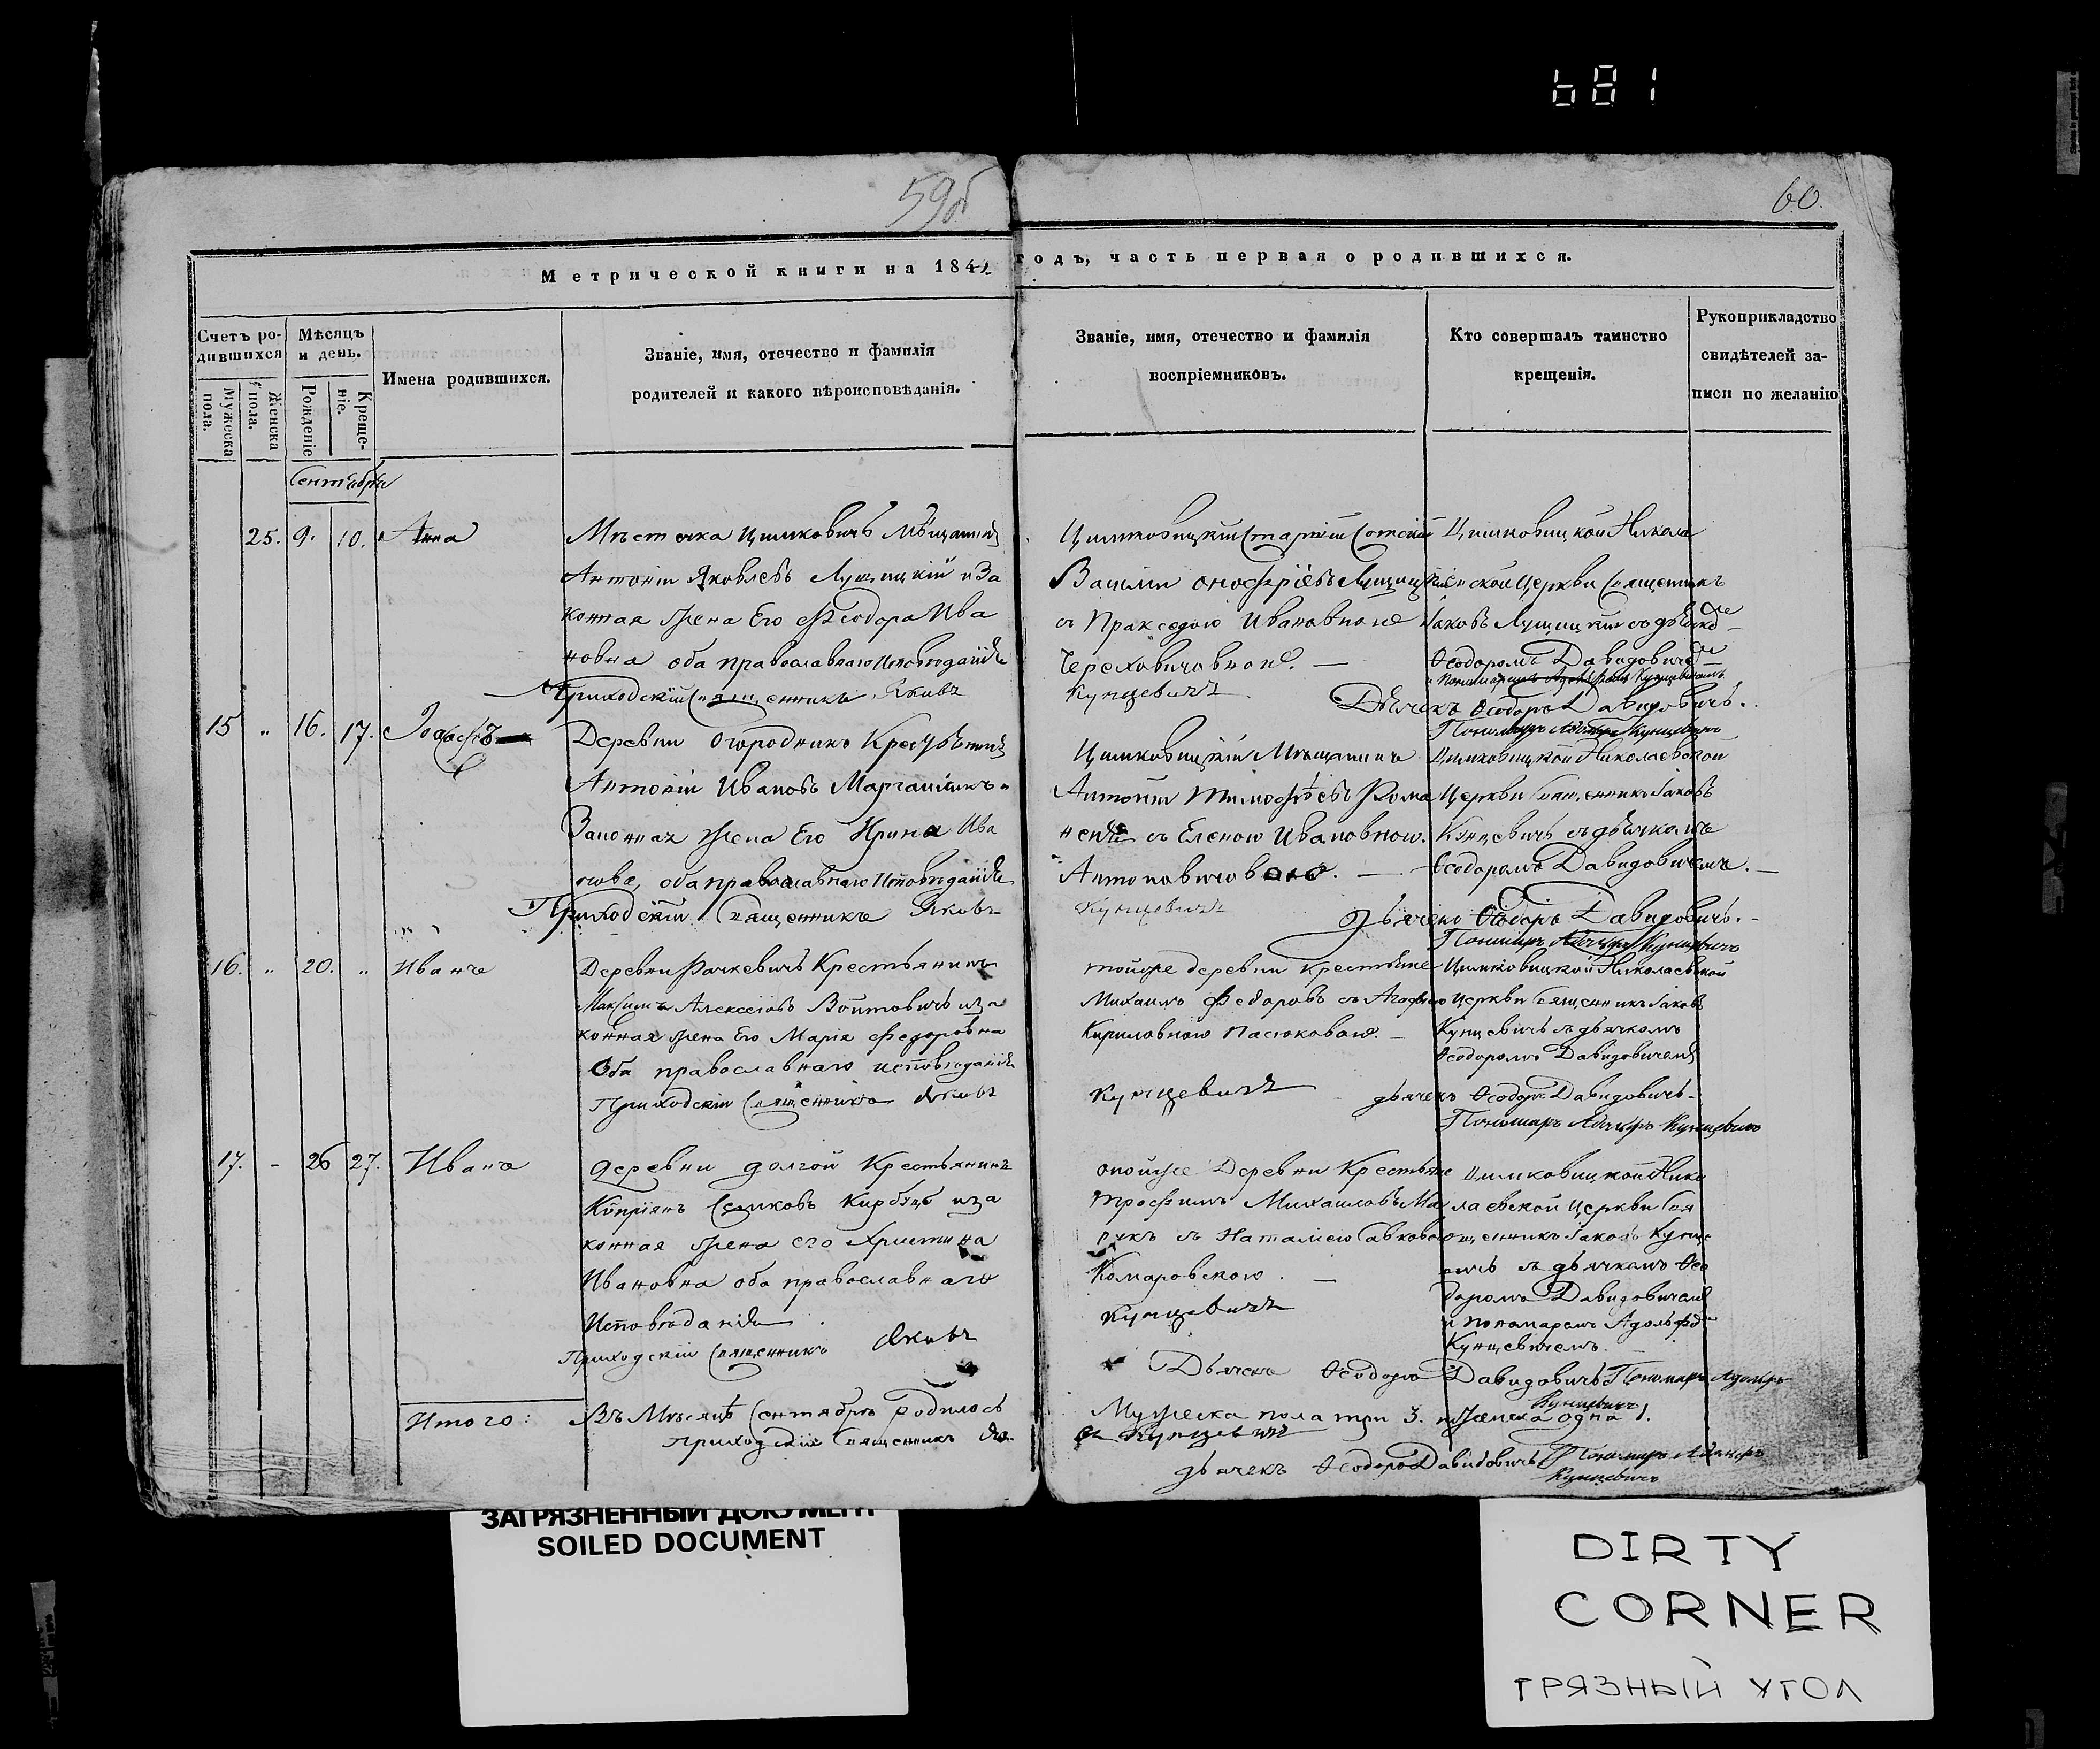 681
59об
60.
Метрической книги на 1842 годъ, часть первая о родившихся.
Счетъ родившихся
Мужеска пола.
Женска пола.
Мѣсяцъ и день.
Рожденіе
Крещеніе.
Имена родившихся.
Званіе, имя, отечество и фамилія
родителей и какого вѣроисповѣданія.
Званіе, имя, отечество и фамилія
воспріемниковъ.
Кто совершалъ таинство
крещенія.
Рукоприкладство
свидѣтелей за-
писи по желанію
Сентября
25. 9. 10. Анна
Мѣстечка Цимковичъ Мѣщанинъ
Антоній Яковлевъ Лущицкій и За
конная Жена Его Феодора Ива
новна оба православнаго Исповѣданія
Приходскій Священникъ Яковъ
Цимковицкій Старшій Сотскій
Василій Онофріевъ Лущицкій
съ Пракседою Ивановною
Череховичовною. —
Кунцевичъ
Цимковицкой Никола
евской Церкви Священникъ
Іаковъ
Феодоромъ Давидовичемъ
и Пономаремъ Адольфомъ Кунцевичемъ
Дьячекъ Феодоръ Давидовичъ.
Пономарь Адольфъ Кунцевичъ
15 " 16. 17. Іосифъ
Деревни Огородникъ Крестьянинъ
Антоній Ивановъ и
Законная Жена Его Ирина Ива
нова, оба православнаго Исповѣданія
Приходскій Священникъ Яковъ
Цимковицкій Мѣщанинъ
Антоній Тимофѣевъ Рома
съ Еленою Ивановною.
Антоновичовною. —
Кунцевичъ
Цимковицкой Николаевской
Церкви Священникъ Іаковъ
Кунцевичъ съ дьячкомъ
Феодоромъ Давидовичемъ. —
Дьячекъ Феодоръ Давидовичъ. -
Пономарь Адольфъ Кунцевичъ
16. " 20. " Иванъ
Деревни Рачкевичъ Крестьянинъ
Максимъ Алексеіовъ Войтовичъ и за
конная жена Его Марія Федоровна
Оба православнаго исповѣданія
Приходскій Священникъ Яковъ
тойже деревни Крестьяне
Михаилъ Федоровъ съ Агафіею
Кириловною Пасюковою. -
Кунцевичъ
Цимковицкой Николаевской
Церкви Священникъ Іаковъ
Кунцевичъ съ дьячкомъ
Феодоромъ Давидовичемъ
дьячекъ Феодоръ Давидовичъ -
Пономарь Адольфъ Кунцевичъ
17. - 26 27. Иванъ
Деревни Долгой Крестьянинъ
Кипріянъ и за
конная жена его Христина
Ивановна оба православнаго
Исповѣданія
Приходскій Священникъ Яковъ
тойже Деревни Крестьяне
Трофимъ Михаиловъ Ма
съ Наталіею Савковою
Комаровскою. —
Кунцевичъ
Цимковицкой Нико
лаевской Церкви Свя
щенникъ Іаковъ Кунце
вичъ съ дьячкомъ Фео
доромъ Давидовичемъ
и пономаремъ Адольфомъ
Кунцевичемъ.
Дьячекъ Феодоръ Давидовичъ Пономарь Адольфъ
Кунцевичъ
Итого: Въ Мѣсяцѣ Сентябрѣ родилось Мужеска пола три 3. и Женска одна 1.
Приходскій Священникъ Яковъ Кунцевичъ
дьячекъ Феодоръ Давидовичъ Пономарь Адольфъ
Кунцевичъ
ЗАГРЯЗНЕННЫЙ ДОКУМЕНТ
SOILED DOCUMENT
DIRTY
CORNER
ГРЯЗНЫЙ УГОЛ